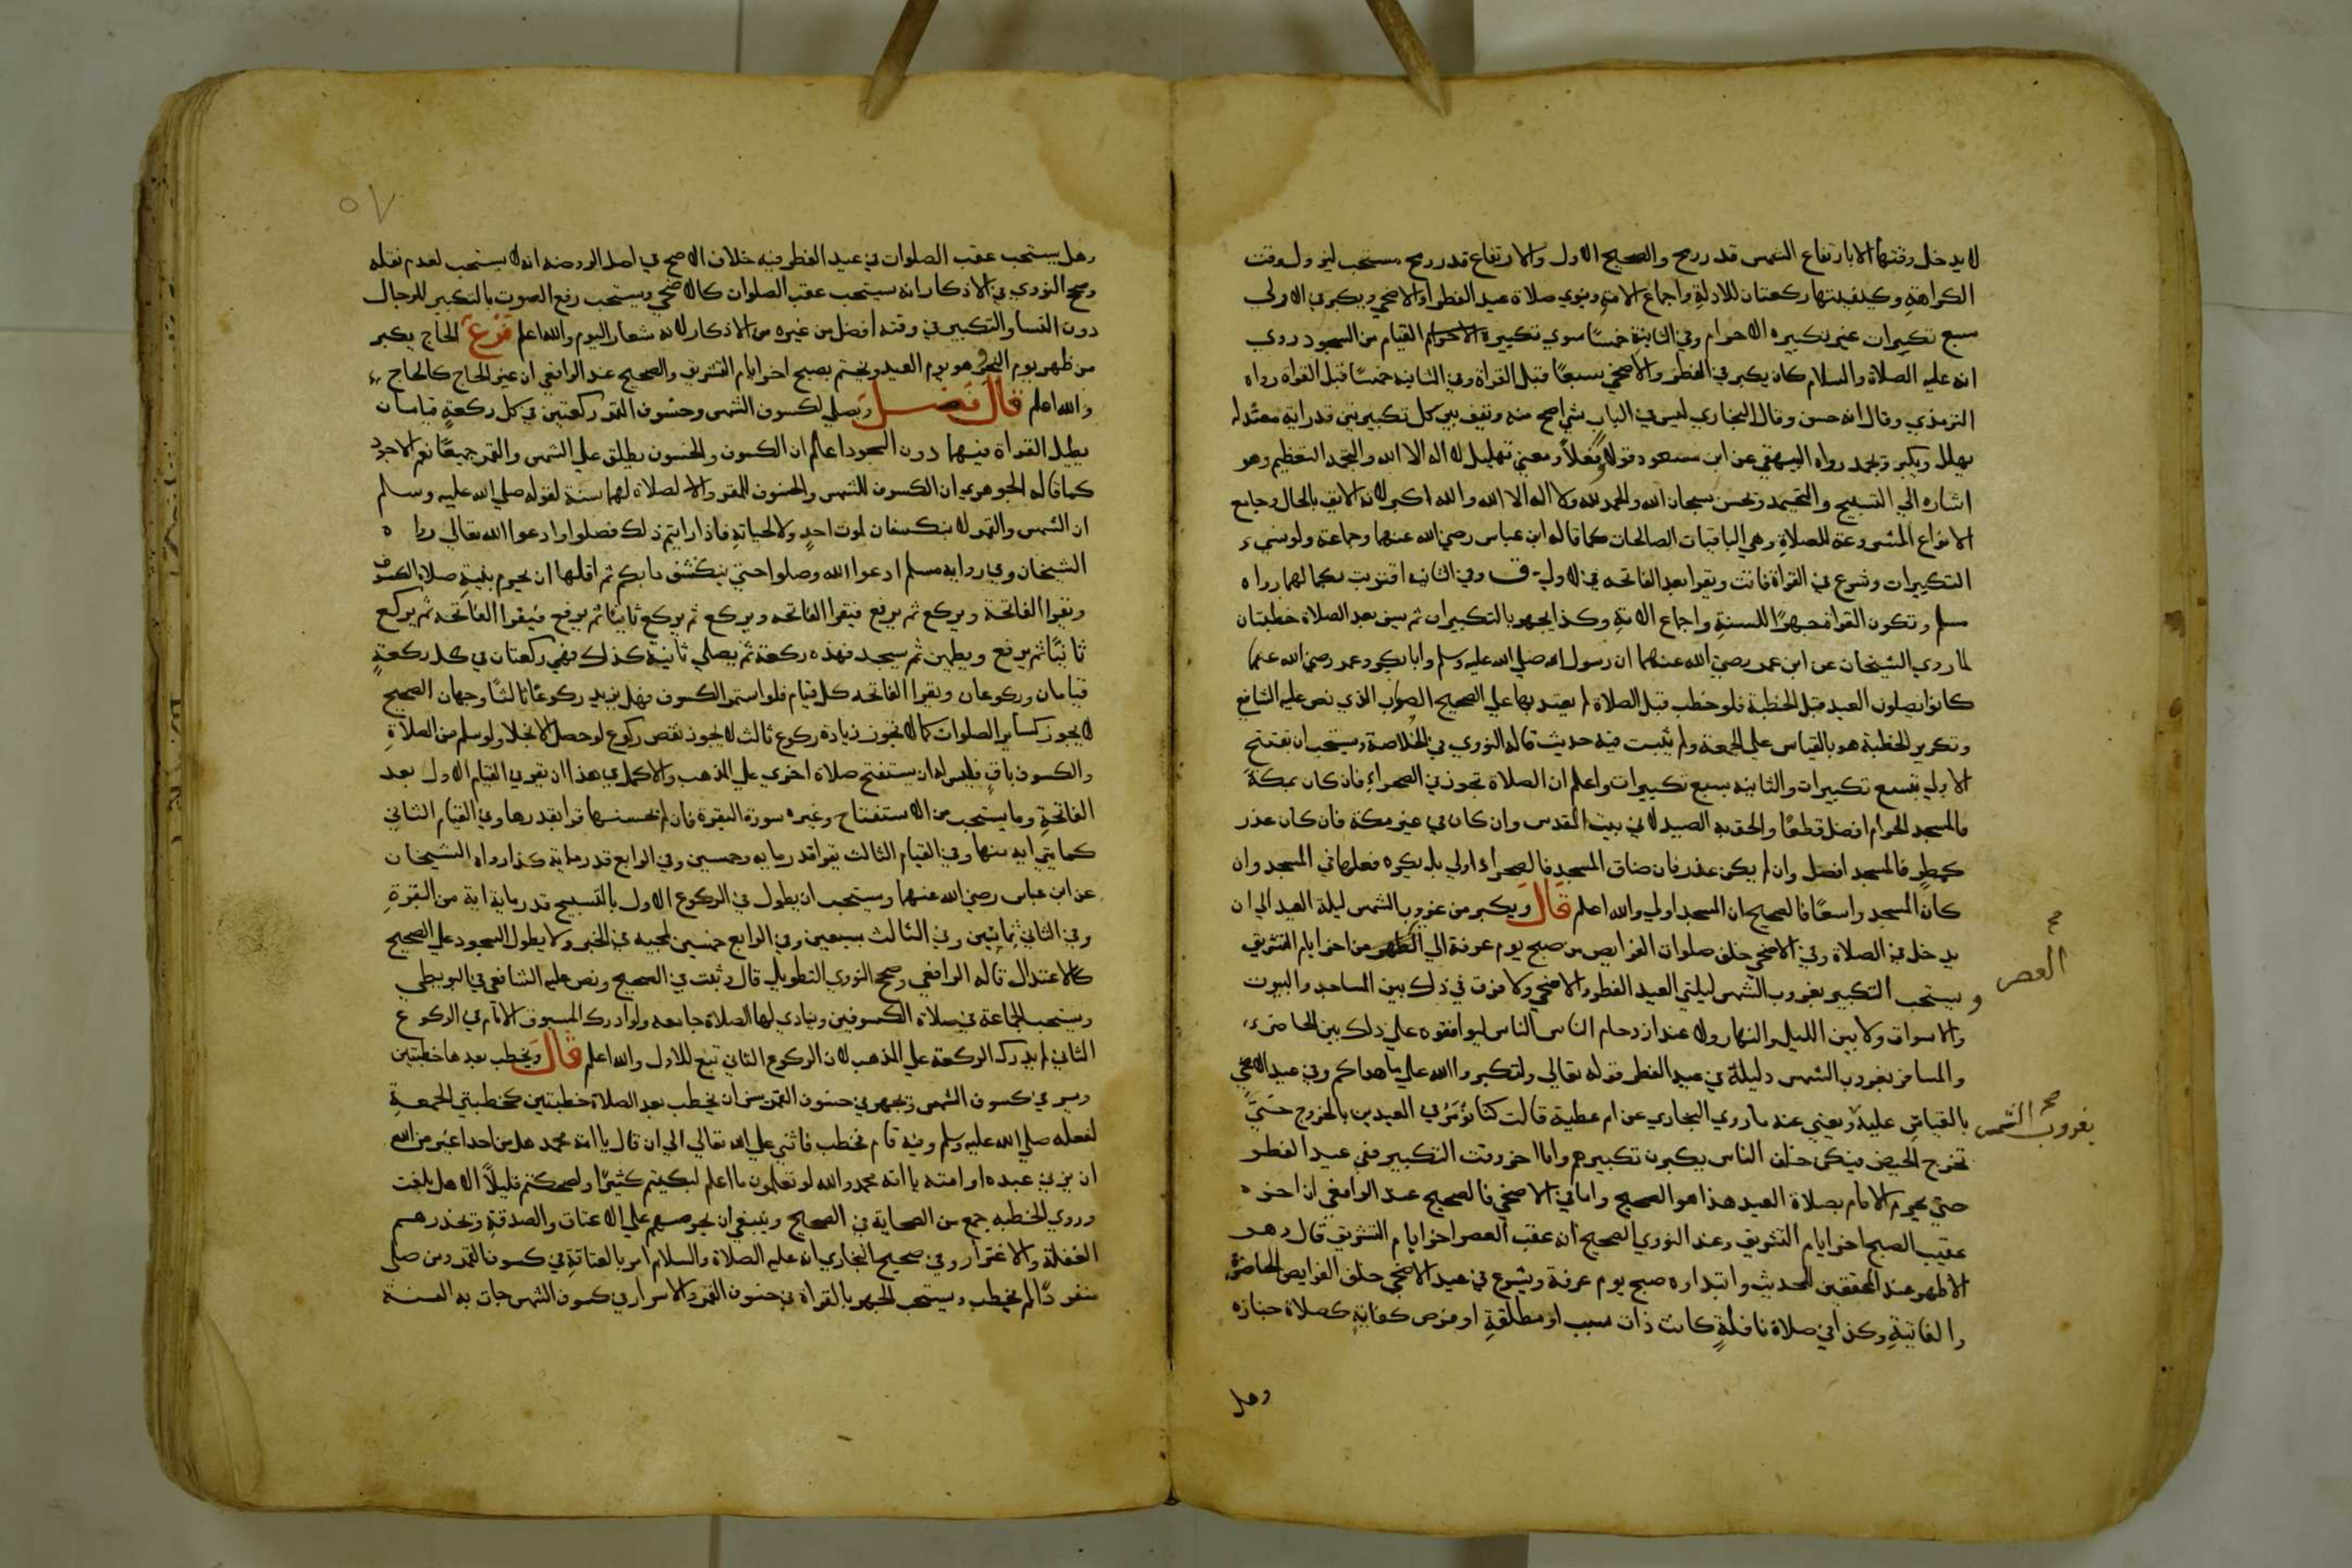 لا يدخل وقتها الا بارتفاع الشمس قدر رمح والصحيح الاول والارتفاع قدر رمح مستحب ليزول وقت
الكراهة وكيفيتها ركعتان للادلة واجماع الامة وينوي صلاة عيد الفطر او الاضحي ويكبر في الاولي
سبع تكبيرات غير تكبيره الاحرام وفي الثانية خمسًا سوي تكبيرة الاحرام القيام من السجود روي
انه عليه الصلاة والسلام كان يكبر في الفطر والاضحي سبعًا قبل القراة وفي الثانيه خمسًا قبل القراه رواه
الترمذي وقال انه حسن وقال البخاري ليس في الباب شي اصح منه ويقف بين كل تكبيرتين قدر اية معتدله
يهلل ويكبر ويحمد رواه البيهقي عن ابن مسعود قولا وفعلاً ومعني تهليل لا اله الا الله والتحمد التعظيم وهو
اشاره الي التسبيح والتحميد ويحسن سبحان الله والحمد لله ولا اله الا الله والله اكبر لانه الايق بالحال وجامع
الانواع المشروعة للصلاة وهي الباقيات الصالحات كما قاله ابن عباس رضي الله عنهما وجماعة ولو نسي
التكبيرات وشرع في القراة فاتت ويقرا بعد الفاتحه في الاولي ق وفي الثانيه اقتربت بكمالهما رواه
مسلم وتكون القراة جهرًا للسنة واجماع الامة وكذا يجهر بالتكبيرات ثم يسن بعد الصلاة خطبتان
لما روي الشيخان عن ابن عمر رضي الله عنهما ان رسول الله صلي الله عليه وسلم وابا بكر وعمر رضي الله عنهما
كانوا يصلون العيد قبل الخطبة فلو خطب قبل الصلاة لم يعتد بها علي الصحيح الصواب الذي نص عليه الشافعي
وتكرير الخطبة هو بالقياس علي الجمعة ولم يثبت فيه حديث قاله النووي في الخلاصة ويستحب ان يفتتح
الاولي بتسع تكبيرات والثانيه بسبع تكبيرات واعلم ان الصلاة تجوز في الصحراء فان كان بمكة
فالمسجد الحرام افضل قطعًا والحق به الصيدلاني بيت المقدس وان كان في غير مكة فان كان عذر
كمطر فالمسجد افضل وان لم يكن عذر فان ضاق المسجد فالصحراء اولي بل يكره فعلها في المسجد وان
كان المسجد واسعًا فالصحيح ان المسجد اولي والله اعلم قال ويكبر من غروب الشمس ليلة العيد الي ان
يدخل في الصلاة وفي الاضحي خلف صلوات الفرايض من صبح يوم عرفة الي الظهر من اخر ايام التشريق
صح
العصر
ويستحب التكبير بغروب الشمس ليلتي العيد الفطر والاضحي ولا فرق في ذلك بين المساجد والبيوت
والاسواق ولا بين الليل والنهار ولا عند ازدحام الناس الناس ليوافقوه علي ذلك بين الحاضر
والمسافر بغروب الشمس دليله في عيد الفطر قوله تعالي ولتكبروا الله علي ما هداكم وفي عيد الاضحي
صح
بغروب الشمس
بالقياس عليه ويعني عنه ما روي البخاري عن ام عطية قالت كنا نؤمر في العيدين بالخروج حتي
تخرج الحيض فيكن خلف الناس يكبرن تكبيرهم واما اخر وقت التكبير ففي عيد الفطر
حتي يحرم الامام بصلاة العيد هذا هو الصحيح واما في الاضحي فالصحيح عند الرافعي ان اخره
عقيب الصبح اخر ايام التشريق وعند النووي الصحيح انه عقب العصر اخر ايام التشريق قال وهو
الاظهر عند المحققين للحديث وابتداره صبح يوم عرفة ويشرع في عيد الاضحي خلف الفرايض الحاضرة
والفايتة وكذا في صلاة نافلة كانت ذات سبب او مطلقة او فرض كفاية كصلاة جنازه
وهل
٥٧
وهل يستحب عقب الصلوات في عيد الفطر فيه خلاف الاصح في اصل الروضه انه لا يستحب لعدم نقله
وصحح النووي في الاذكار انه يستحب عقب الصلوات كالاضحي ويستحب رفع الصوت بالتكبير للرجال
دون النسا والتكبير في وقته افضل من غيره من الاذكار لانه شعار اليوم والله اعلم فرع الحاج يكبر
من ظهر يوم النحر وهو يوم العيد ويختم بصبح اخر ايام التشريق والصحيح عند الرافعي ان غير الحاج كالحاج
والله اعلم قال فصل ويصلي لكسوف الشمس وخسوف القمر ركعتين في كل ركعة قيامان
يطيل القراة فيهما دون السجود اعلم ان الكسوف والخسوف يطلق علي الشمس والقمر جميعًا نعم الاجود
كما قاله الجوهري ان الكسوف للشمس والخسوف للقمر والا لصلاة لهما سنة لقوله صلي الله عليه وسلم
ان الشمس والقمر لا ينكسفان لموت احدٍ ولا لحياته فاذا رايتم ذلك فصلوا وادعوا الله تعالي رواه
الشيخان وفي رواية مسلم ادعوا الله وصلوا حتي ينكشف ما بكم ثم اقلها ان يحرم بنية صلاة الكسوف
ويقرا الفاتحة ويركع ثم يرفع فيقرا الفاتحه ويركع ثم يركع ثانيًا ثم يرفع فيقرا الفاتحه ثم يركع
ثانيًا ثم يرفع ويطمين ثم يسجد فهذه ركعة ثم يصلي ثانية كذلك فهي ركعتان في كل ركعة
قيامان وركوعان ويقرا الفاتحه كل قيام فلو استمر الكسوف فهل يزيد ركوعًا ثالثًا وجهان الصحيح
لا يجوز كساير الصلوات كما لا تجوز زيادة ركوع ثالث لا يجوز نقص ركوع لو حصل الانجلا ولو سلم من الصلاة
والكسوف باقٍ فليس له ان يستفتح صلاة اخري علي المذهب والاكمل في هذا ان يقرا في القيام الاول بعد
الفاتحة وما يستحب من الاستفتاح وغيره سورة البقرة فان لم يحسنها قرا بقدرها وفي القيام الثاني
كمايتي ايه منها وفي القيام الثالث يقرا قدر مايه وخمسين وفي الرابع قدر ماية كذا رواه الشيخان
عن ابن عباس رضي الله عنهما ويستحب ان يطول في الركوع الاول بالتسبيح قدر ماية اية من البقرة
وفي الثاني ثمانين وفي الثالث سبعين وفي الرابع خمسين لمجيه في الخبر ولا يطول السجود علي الصحيح
كالاعتدال قاله الرافعي وصحح النووي التطويل قال وثبت في الصحيح ونص عليه الشافعي في البويطي
ويستحب الجماعة في صلاة الكسوفين وينادي لها الصلاة جامعه ولو ادرك المسبوق الامام في الركوع
الثاني لم يدرك الركعة علي المذهب لان الركوع الثاني تبع للاول والله اعلم قال ويخطب بعدها خطبتين
ويسر في كسوف الشمس ويجهر في خسوف القمر سن ان يخطب بعد الصلاة خطبتين كخطبتي الجمعة
لفعله صلي الله عليه وسلم وفيه قام فخطب فاثني علي الله تعالي الي ان قال يا امة محمد هل من احد اغير من الله
ان يزني عبده او امته يا امة محمد والله لو تعلمون ما اعلم لبكيتم كثيرًا ولضحكتم قليلاً الا هل بلغت
وروي الخطبه جمع من الصحابة في الصحيح وينبغي ان يحرصهم علي الاعتاق والصدقة وتحذرهم
الغفلة والاغترار وفي صحيح البخاري انه عليه الصلاة والسلام امر بالعتاقة في كسوف القمر ومن صلي
منفردًا لم يخطب ويستحب الجهر بالقراة في خسوف القمر والاسرار في كسوف الشمس جات به السنة